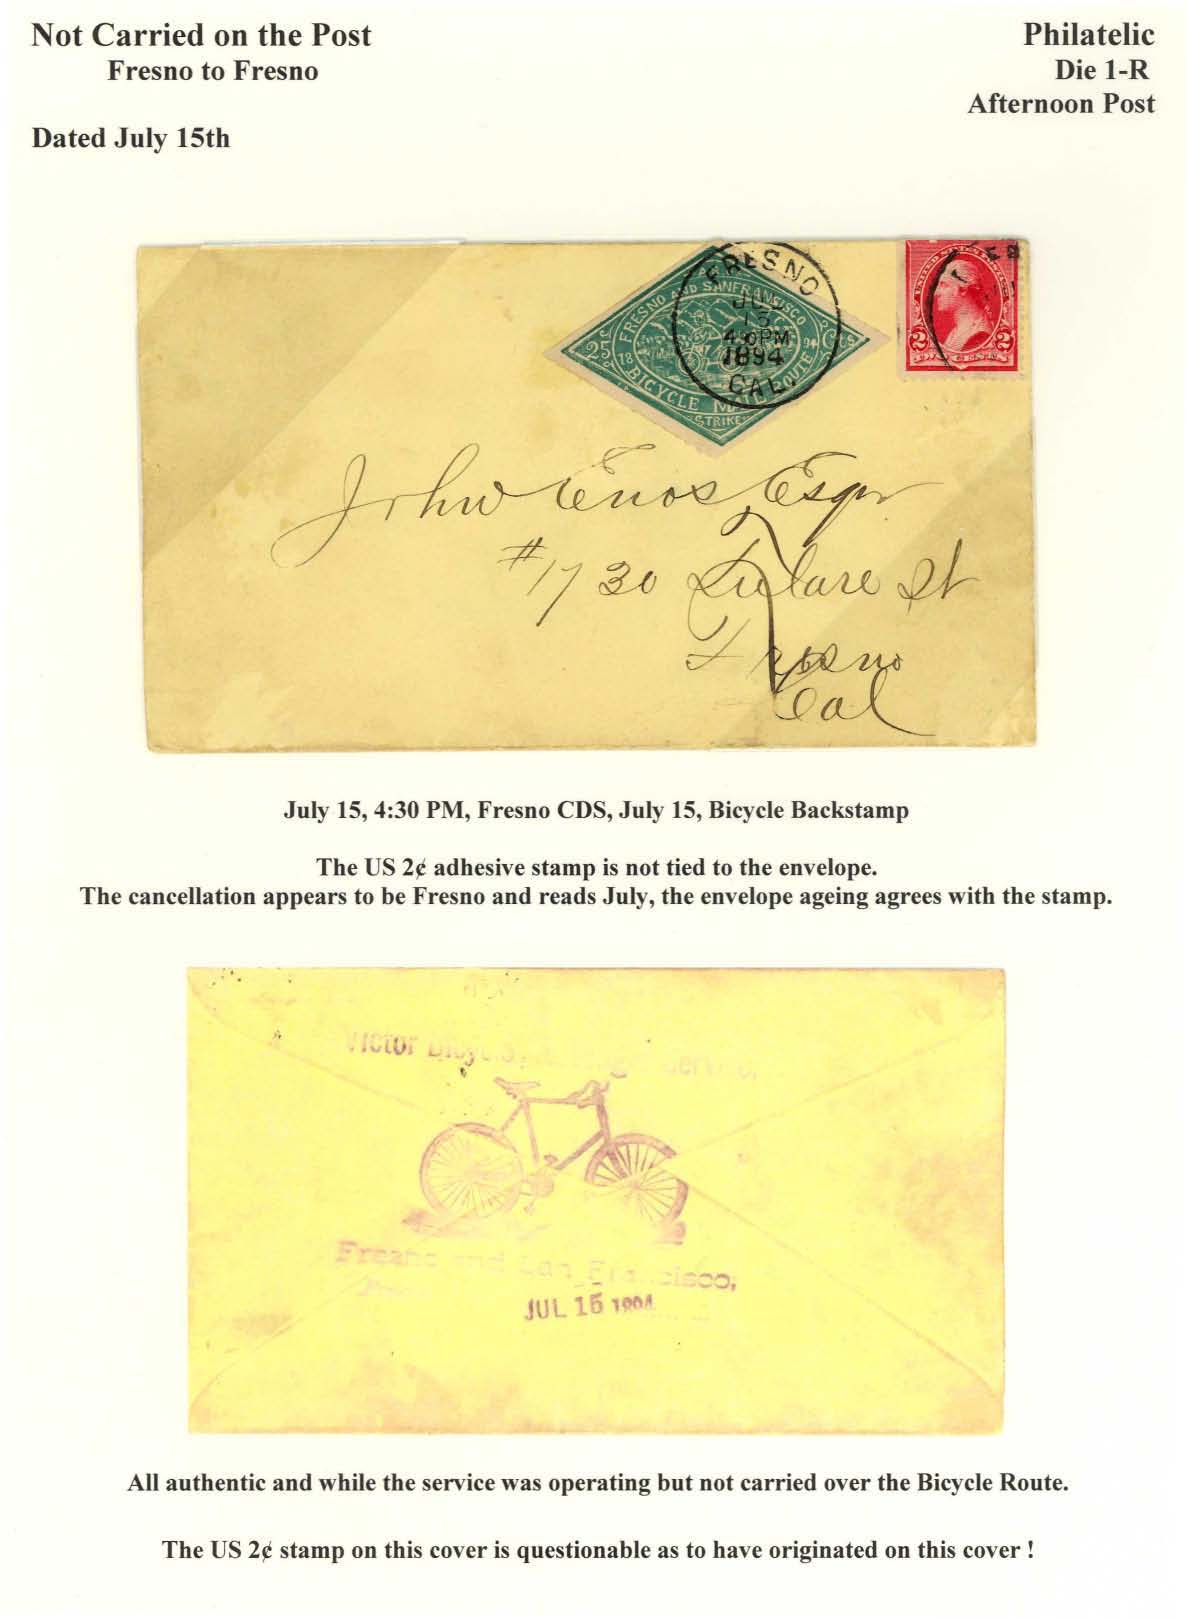 Not Carried on the Post
Fresno to Fresno
Philatelic
Die 1-R
Afternoon Post
Dated July 15th
FRESNO
JUL
15
4 30 PM
1894
CAL.
FRESNO AND SANFRANCISCO
25
18 94
BICYCLE MAIL ROUTE
STRIKE
2 2
John Enos Esqr
#1730 Tulare St
Fresno
Cal
July 15, 4:30 PM, Fresno CDS, July 15, Bicycle Backstamp
The US 2¢ adhesive stamp is not tied to the envelope.
The cancellation appears to be Fresno and reads July, the envelope ageing agrees with the stamp.
Victor Bicycle Service,
Fresno and San Francisco,
JUL 15 1894
All authentic and while the service was operating but not carried over the Bicycle Route.
The US 2¢ stamp on this cover is questionable as to have originated on this cover !